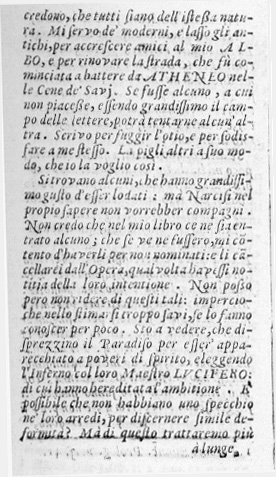 credono, che tutti siano dell'istessa natu-
ra. Mi servo de' moderni, e lasso gli an-
tichi, per accrescere amici al mio AL-
BO, e per rinovare la strada, che fù co-
minciata a battere da ATHENEO nel-
le Cene de' Savj. Se fusse alcuno, a cui
non piacesse, essendo grandissimo il cam-
po delle lettere, potrà tentarne alcun'al-
tra. Scrivo per fuggir l'otio, e per sodis-
fare a me stesso. La pigli altri a suo mo-
do, che io la voglio così.
Si trovano alcuni, che hanno grandissi-
mo gusto d'esser lodati: ma Narcisi nel
proprio sapere non vorrebber compagni.
Non credo che nel mio libro ce ne sia en-
trato alcuno; che se ve ne fussero, mi cō-
tento d'haverli per non nominati: e li cā-
cellarei dall'Opera, qual volta havessi no-
titia della loro intentione. Non posso
però non ridere di questi tali: impercio-
che nello stimarsi troppo savj, se lo fanno
conoscer per poco. Sto a vedere, che di-
sprezzino il Paradiso per esser appa-
recchiato a poveri di spirito, eleggendo
l'Inferno col loro Maestro LUCIFERO:
di cui hanno hereditata l'ambitione. E
possibile che non habbiano uno specchio
ne' loro arredi, per discernere simile de-
formità? Mà di questo trattaremo più
à lunge.